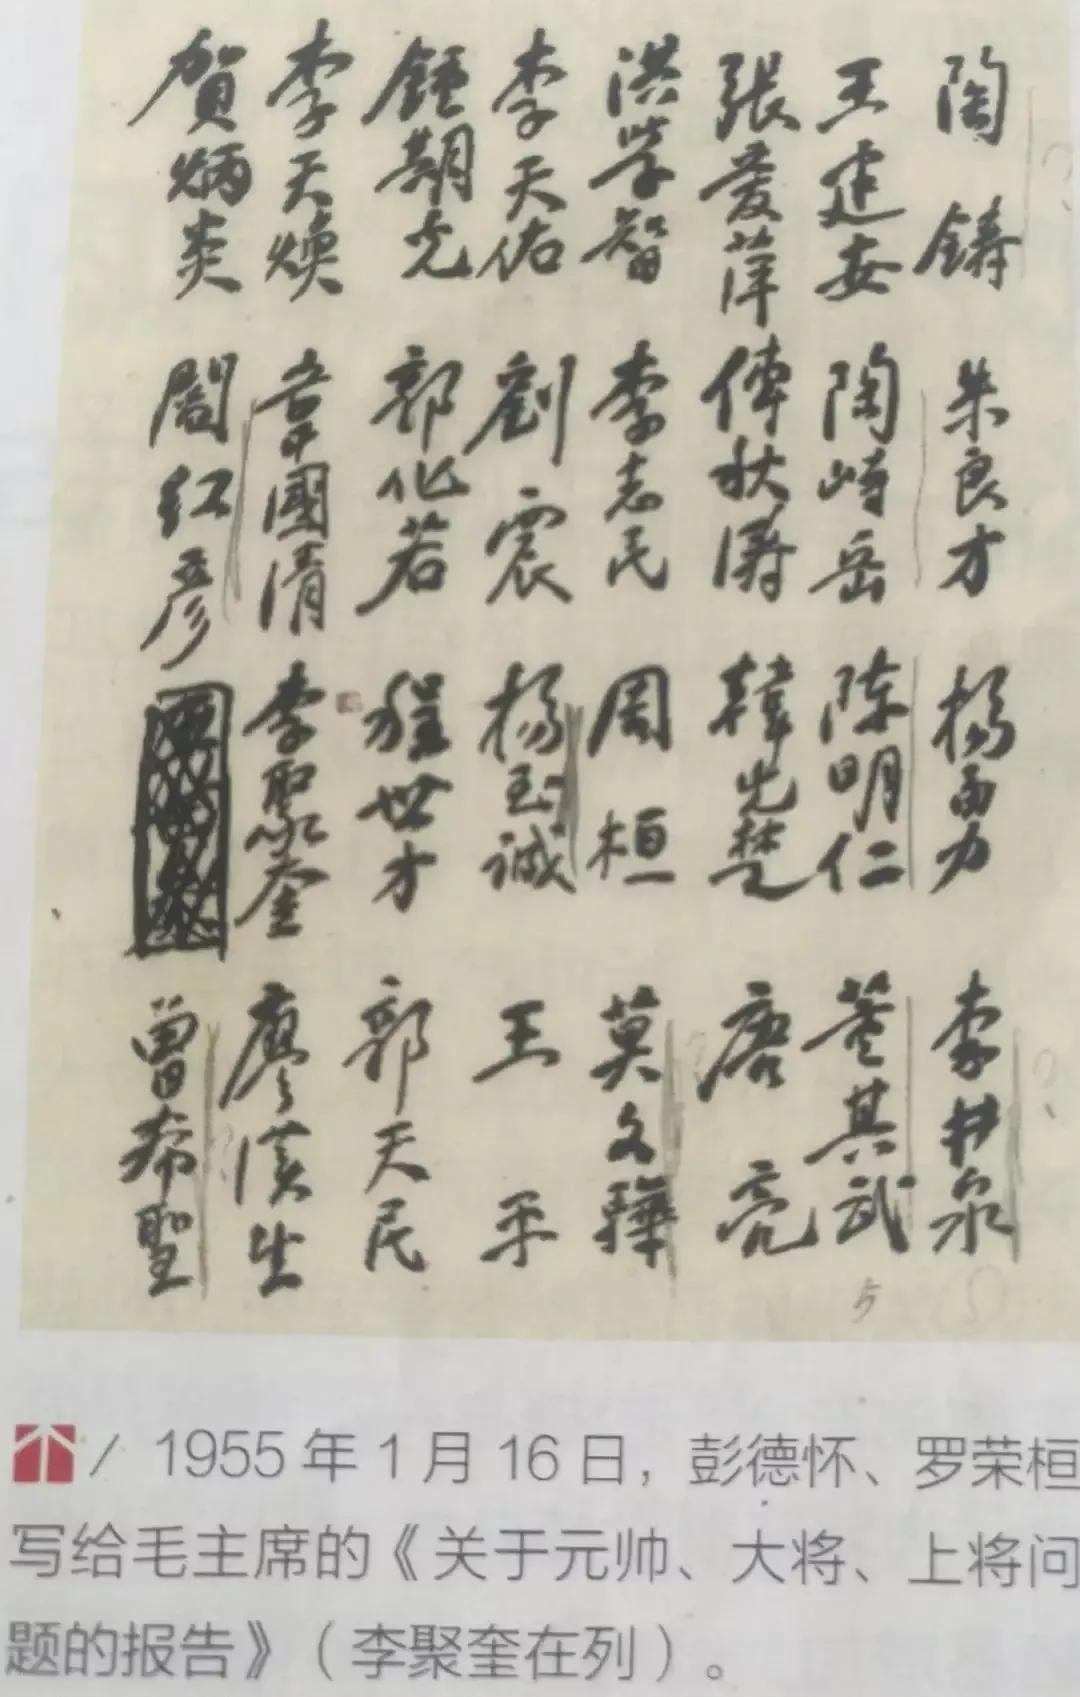 陶鑄 朱良才 楊勇 李井泉
王建安 陶峙岳 陈明仁 董其武
張愛萍 傅秋濤 韓先楚 唐亮
洪学智 李志民 周桓 莫文驊
李天佑 劉震 楊至誠 王平
鍾期光 郭化若 程世才 郭天民
李天煥 韋國清 李聚奎 廖漢生
賀炳炎 閻红彦 曾希聖
/ 1955年1月16日，彭德怀、罗荣桓
写给毛主席的《关于元帅、大将、上将问
题的报告》（李聚奎在列）。